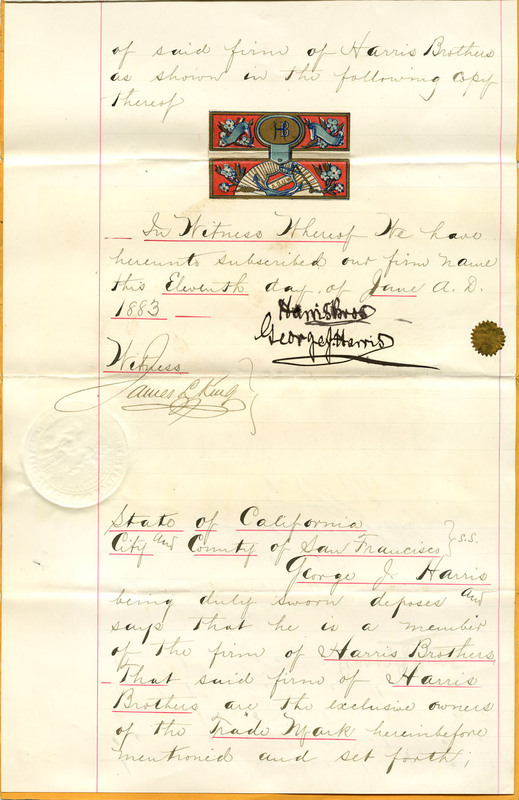 of said firm of Harris Brothers
as shown in the following copy
thereof
HB
In Witness Whereof We have
hereunto subscribed our firm name
this Eleventh day of June A. D.
1883
Harris Bros
George J Harris
Witness
James L King
State of California
City and County of San Francisco } S.S.
George J. Harris
being duly sworn deposes and
says that he is a member
of the firm of Harris Brothers,
That said firm of Harris
Brothers are the exclusive owners
of the Trade Mark hereinbefore
mentioned and set forth;